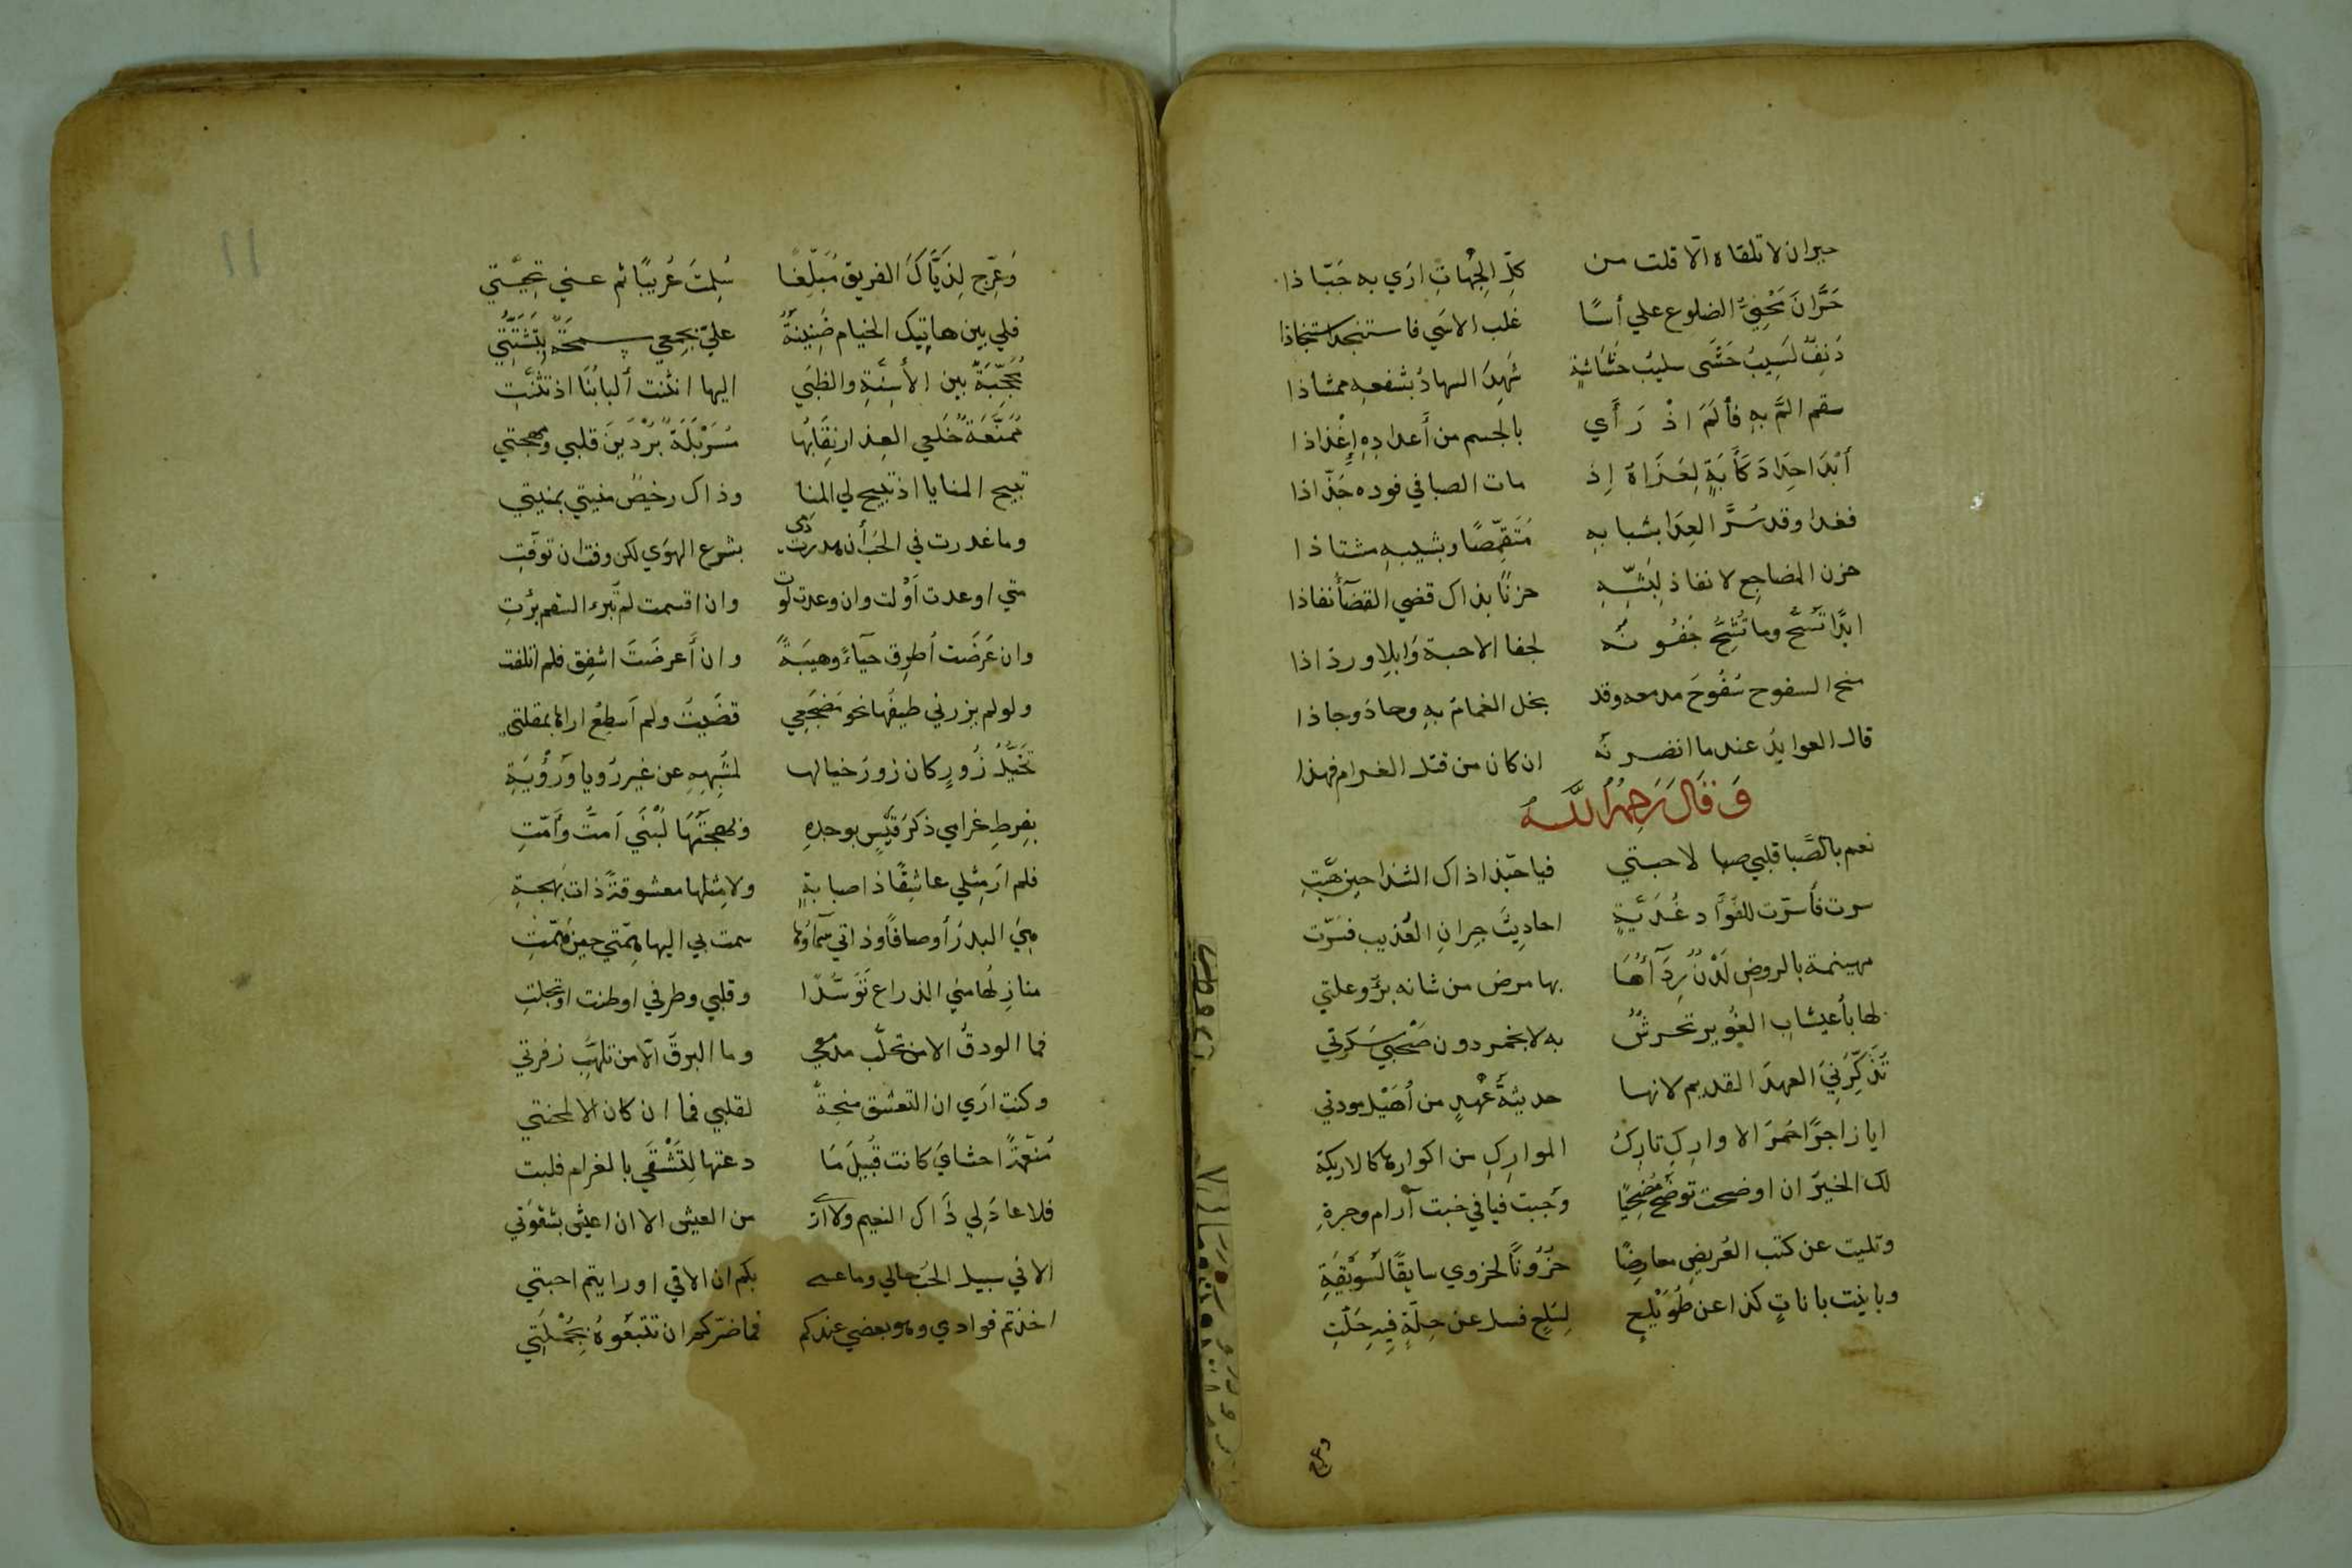 حيران لا تلقاه الّا قلت من كلِّ الجِهَاتِ اري به جَبّاذا
حَرَّانَ مَحْنِيّ الضلوع علي أسًا غلب الاسَي فاستنجد استنجاذا
دَنِفٌ لَسِيبُ حَشَى سليبُ حُشَاشَةٍ شَهِدَ السهادُ بشفعه ممشاذا
سقم المَّ بهِ فألَمَ اذْ رَأَي بالجسم من أَعدادِهِ إِغْذاذا
أَبْدَا حِدَادَ كَآبَةٍ لِعَزَاهُ إِذ مات الصبا في فوده جَذّاذا
فغدا وقد سُرَّ العِدَا بشبابهِ مُتَقمِّصًا وبشيبهِ مشتاذا
حزن المضاجِعِ لا نفاذ لِبَثِّهِ حزنًا بذاك قضي القضآُ نفاذا
ابدًا تَسُحُّ وما تَشِحُّ جُفُونُه لجفا الاحبة وَابلاِ ورذاذا
منح السفوح سُفُوحَ مدمعه وقد بخل الغمامُ بهِ وجادَ وجاذا
قال العوايدُ عندما ابصرنَه ان كان من قتل الغرام فهذا
وَقَالَ رَحِمَهُ اللَّهُ
نعم بالصَّبا قلبي صبا لاحبتي فيا حبّذا ذاك الشذا حين هَبَّتِ
سرت فأسرّت للفؤاد غُدَيَّةٍ احاديثَ جيرانِ العُذيب فسَرّت
مهينمة بالروضِ لَدْنٌ رِدَآؤُهَا بها مرض من شانه برْؤ علتي
لها بأُعيشابِ الغُوير تحرشٌ به لا بخمر دون صَحْبِيَ سَكرتي
تُذَكِّرُنِيَ العهدَ القديم لانها حديثةُ عَهْدٍ من أُهَيْلِ مودتي
ايا زاجرًا حُمرَ الاوارِكِ تارِكُ الموارِكِ من اكوارِها كالاريكة
لك الخيرُ ان اوضحت توضحَ مُضْحِيًا وَجبت فيافي خبت آرام وجرةِ
ونكبت عن كثب العُريضِ معارضًا حُزُونًا لحزوي سايقًا لسُوَيْقَةِ
وباينت باناتٍ كذا عن طُوَيْلِعٍ لِسَلعٍ فسل عن حِلّةٍ فيهِ حَلّتِ
وعرج
11
وَعَرِّج لِذَيّاكَ الفريق مُبَلّغًا سُلِمتَ عُريبًا ثم عني تحِيَّتي
فلي بين هاتيك الخيام ضَنِينَةٌ عليّ بجمعي سمحَةٌ بتَشَتُّتِي
مُحَجَّبَةٌ بين الأَسِنَّةِ والظبَي اليها انثنت ألبابُنَا اذ تثنَّتِ
مُمَنَّعَةٌ خَلْعي العِذار نِقَابُها مُسَرْبَلَةٌ بُرْدَينِ قلبي ومهجتي
تبيح المنايا اذ تبيح لي المنا وذاك رخيصٌ منيتي بمنيتي
وما غدرت في الحبّ أن هدرت دمي بشرع الهوَي لكن وفت ان توفّتِ
متي اوعدت أوْلت وان وعدت لوت وان اقسمت لم تَبرءِ السقم برّتِ
وان عَرَضَت أُطرِق حيآءً وهيبَةً وان أَعرضَتَ اشفِق فلم اتلفت
ولو لم يزرني طيفُها نحو مَضجَعِي قضَيتُ ولم أسطِعْ اراها بمقلتي
تَخَيُّلُ زُورٍ كان زورَ خيالها لمُشْبِهِهِ عن غير رؤيا وَرُؤْيَةِ
بفرطِ غرامي ذكرَ قَيْسٍ بوجدِهِ وبهجتُهَا لُبْنَي أَمتُّ وَأَمَّتِ
فلم ارَ مثلي عاشِقًا ذا صبابةٍ ولا مِثلها معشوقةً ذات بَهجة
هِيَ البدرُ أوصافًا وذاتي سَمَآؤُها سمت بي اليها هِمَّتي حينَ هَمَّتِ
منازِلُها مني الذراع تَوَسُّدًا وقلبي وطرفي اوطنت او تجلتِ
فما الودقُ الا من تحلّب مدمعي وما البرقَ الّا من تلهّبِ زفرتي
وكنت اري ان التعشق منحةٌ لقلبي فما ان كان الا لمحنتي
مُنعّمَةً احشايَ كانت قُبيلَ مَا دعتها لِتَشْقَي بالغرام فلبت
فلا عادَ لي ذَاك النعيم ولا اري من العيش الا ان اعيش بشقوَتي
الا في سبيل الحُب حالي وما عسى بكم ان الاقي او دريتم احبتي
اخذتم فوادي وهو بعضي عندكم فما ضرّكم ان تتبعُوهُ بِجُمْلَتِي